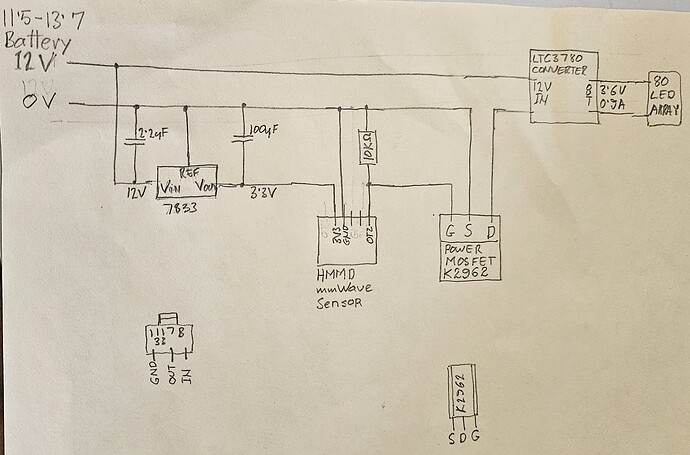 11'5-13'7
Battery
12V
0V
LTC3780
CONVERTER
12V
IN
3'6V
0'9A
80
LED
ARRAY
2'2µF
100µF
10KΩ
REF
12V
VIN
VOUT
3'3V
7833
3V3
GND
OT2
G S D
POWER
MOSFET
K2962
HMMD
mmWave
Sensor
1117 8
33
GND
OUT
IN
K2962
S D G